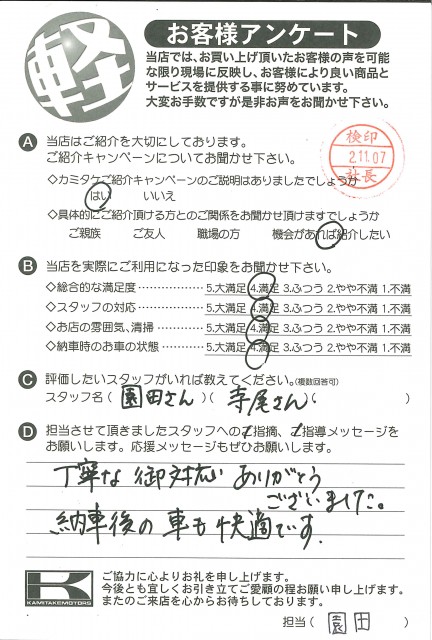 軽
お客様アンケート
当店では、お買い上げ頂いたお客様の声を可能
な限り現場に反映し、お客様により良い商品と
サービスを提供する事に努めています。
大変お手数ですが是非お声をお聞かせ下さい。
A 当店はご紹介を大切にしております。
ご紹介キャンペーンについてお聞かせ下さい。
検印
2.11.07
社長
◇カミタケご紹介キャンペーンのご説明はありましたでしょうか
はい いいえ
◇具体的にご紹介頂ける方とのご関係をお聞かせ頂けますでしょうか
ご親族 ご友人 職場の方 機会があれば紹介したい
B 当店を実際にご利用になった印象をお聞かせ下さい。
◇総合的な満足度……………5.大満足 4.満足 3.ふつう 2.やや不満 1.不満
◇スタッフの対応……………5.大満足 4.満足 3.ふつう 2.やや不満 1.不満
◇お店の雰囲気、清掃………5.大満足 4.満足 3.ふつう 2.やや不満 1.不満
◇納車時のお車の状態………5.大満足 4.満足 3.ふつう 2.やや不満 1.不満
C 評価したいスタッフがいれば教えてください。(複数回答可)
スタッフ名(園田さん)(寺尾さん( )
D 担当させて頂きましたスタッフへのご指摘、ご指導メッセージを
お願いします。応援メッセージもぜひお願いします。
丁寧な御対応ありがとう
ございました。
納車後の車も快適です.
K
KAMITAKEMOTORS
ご協力に心よりお礼を申し上げます。
今後とも宜しくお引き立てご愛顧の程お願い申し上げます。
またのご来店を心からお待ちしております。
担当(園田)